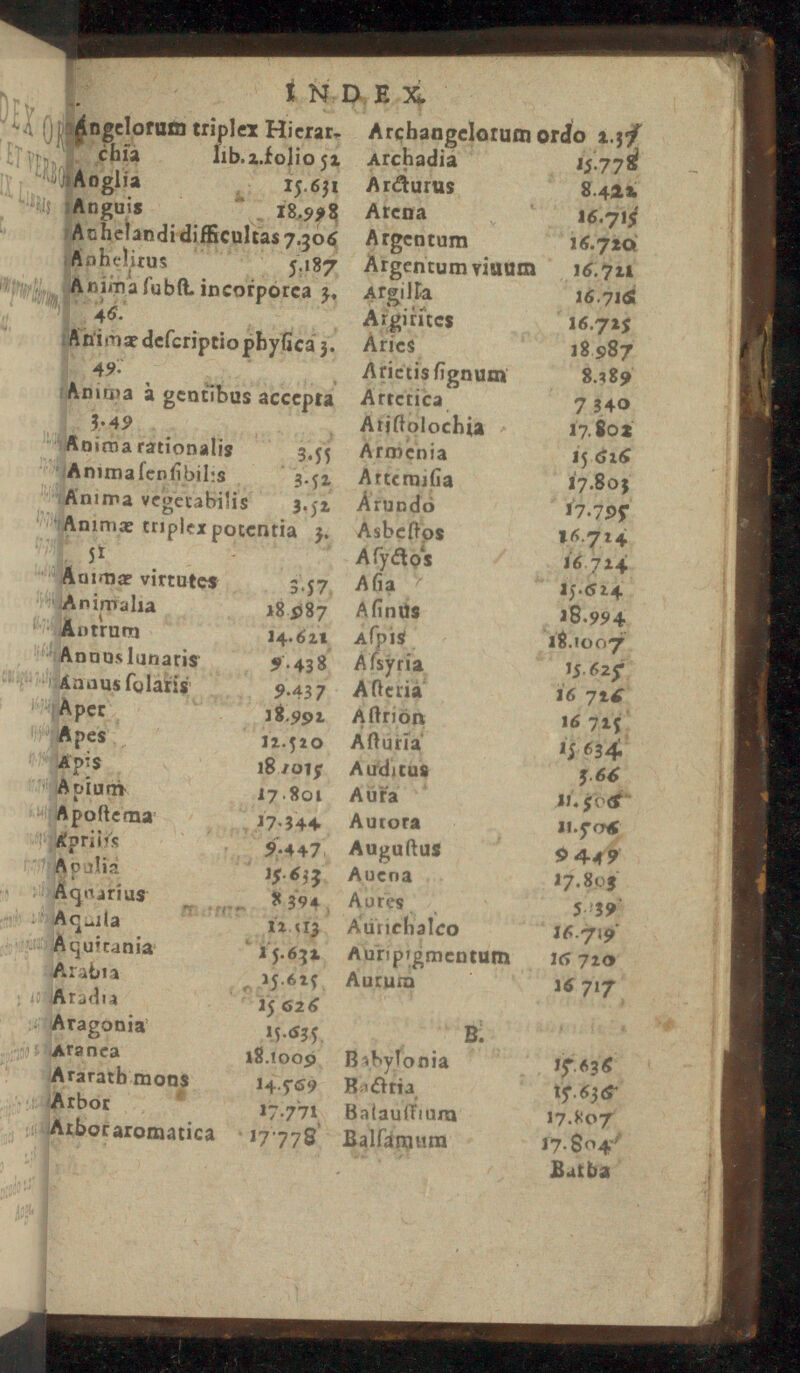 INDEX
Angelorum triplex Hierar-
chia lib.2.folio 52
Anglia 15.631
Anguis 18.998
Anhelandi difficultas 7.306
Anhelitus 5.187
Anima subst. incorporea 3.
46.
Animæ descriptio physica 3.
49.
Anima à gentibus accepta
3.49
Anima rationalis 3.55
Anima sensibilis 3.52
Anima vegetabilis 3.52
Animæ triplex potentia 3.
51
Animæ virtutes 3.57
Animalia 18.987
Antrum 14.621
Annus lunaris 9.438
Annus solaris 9.437
Aper 18.992
Apes 12.520
Apis 18 1015
Apium 17.801
Apostema 17.344
Aprilis 9.447
Apulia 15.633
Aquarius 8 394
Aquila 12.513
Aquitania 15.632
Arabia 15.625
Aradia 15 626
Aragonia 15.635
Aranea 18.1009
Ararath mons 14.569
Arbor 17.771
Arbor aromatica 17 778
Archangelorum ordo 2.37
Archadia 15.778
Arcturus 8.422
Arena 16.715
Argentum 16.720
Argentum viuum 16.721
Argilla 16.716
Argirites 16.725
Aries 18 987
Arietis signum 8.389
Arterica 7 340
Aristolochia 17.802
Armenia 15 616
Artemisia 17.803
Arundo 17.795
Asbestos 16.724
Asyctos 16.724
Asia 15.624
Asinus 18.994
Aspis 18.1007
Assyria 15.625
Asteria 16 726
Astrion 16 725
Asturia 15 634
Auditus 3.66
Aura 11.506
Aurora 11.506
Augustus 9 449
Auena 17.803
Aures 5.139
Aurichalco 16.719
Auripigmentum 16 720
Aurum 16 717
B.
Babylonia 15.636
Bactria 15.636
Balaustium 17.807
Balsamum 17.804
Barba